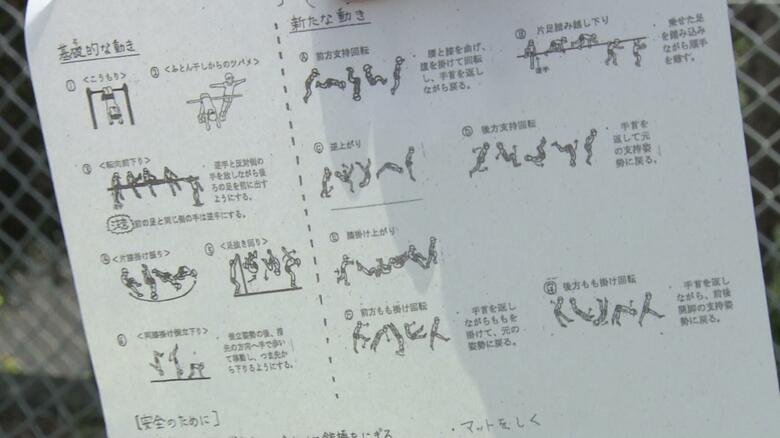 基礎的な動き
① <こうもり>
② <ふとん干しからのツバメ>
③ <転向前下り>
逆手と反対側の
手を放しながら後
ろの足を前に出す
ようにする。
逆手
注意 前の足と同じ側の手は逆手にする。
④ <片膝掛け振り>
⑤ <足抜き回り>
⑥ <両膝掛け倒立下り>
倒立姿勢の後、指
先の方向へ手で歩い
て移動し、つま先か
ら下りるようにする。
新たな動き
Ⓐ 前方支持回転
腰と膝を曲げ、
腹を掛けて回転
し、手首を返し
ながら戻る。
Ⓑ 片足踏み越し下り
逆手
乗せた足
を踏み込み
ながら順手
を離す。
Ⓒ 逆上がり
Ⓓ 後方支持回転
手首を
返して元
の支持姿
勢に戻る。
Ⓔ 膝掛け上がり
Ⓕ 前方もも掛け回転
手首を返し
ながらももを
掛けて、元の
姿勢に戻る。
Ⓖ 後方もも掛け回転
手首を返し
ながら、前後
開脚の支持姿
勢に戻る。
[安全のために]
・マットをしく